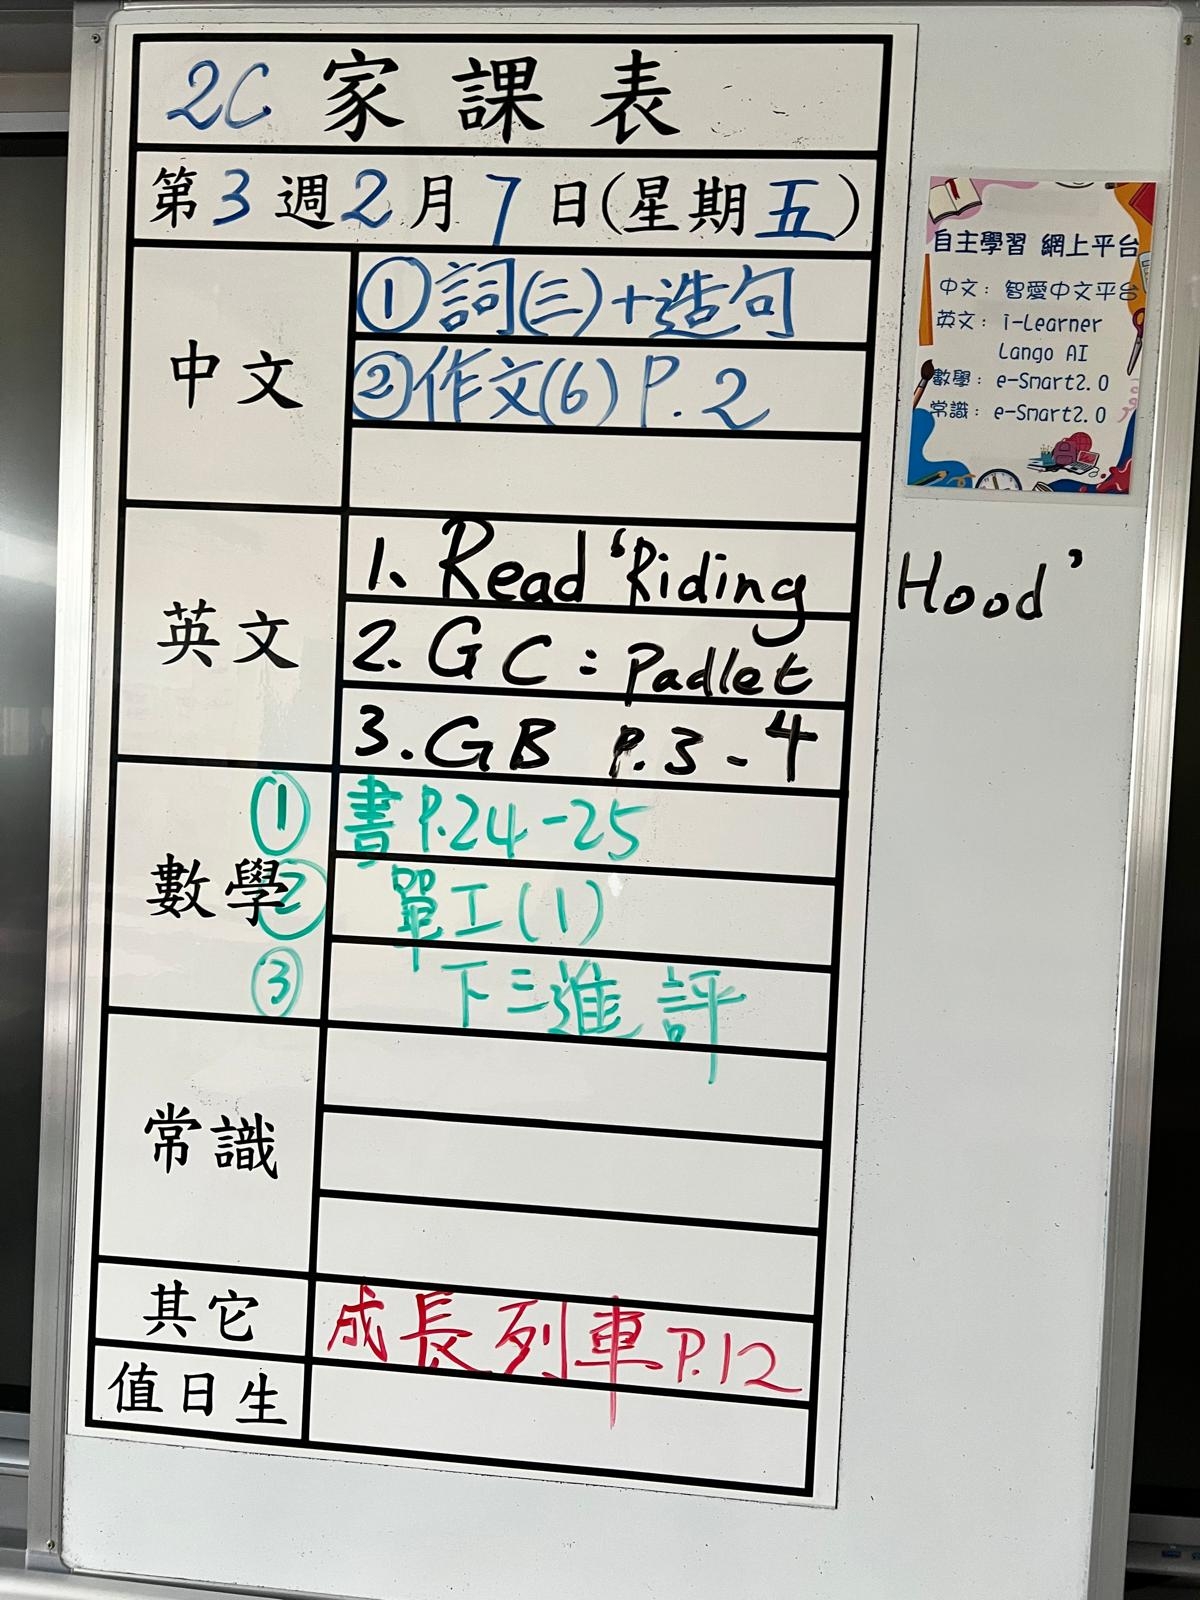 2C 家課表
第3週2月7日(星期五)
中文
①詞(三)+造句
②作文(6) P.2
英文
1. Read 'Riding Hood'
2. GC: Padlet
3. GB P.3-4
數學
① 書P.24-25
② 單工(1)
③ 下三進評
常識
其它
成長列車P.12
值日生
自主學習 網上平台
中文: 智愛中文平台
英文: i-Learner
Lango AI
數學: e-Smart2.0
常識: e-Smart2.0